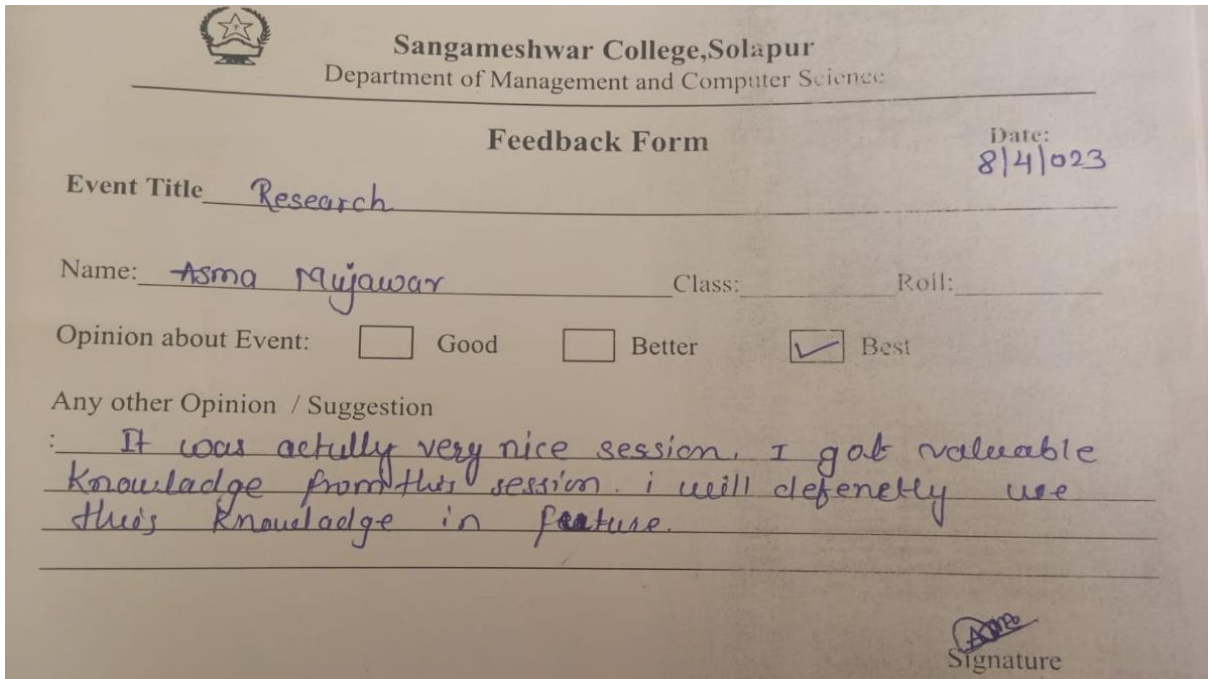 Sangameshwar College,Solapur
Department of Management and Computer Science
Feedback Form
Date:
8/4/023
Event Title Research
Name: Asma Mujawar Class: Roll:
Opinion about Event: Good Better Best
Any other Opinion / Suggestion
: It was actully very nice session. I got valuable
Knowladge from this session. i will defenetly use
this Knowladge in feature.
Signature